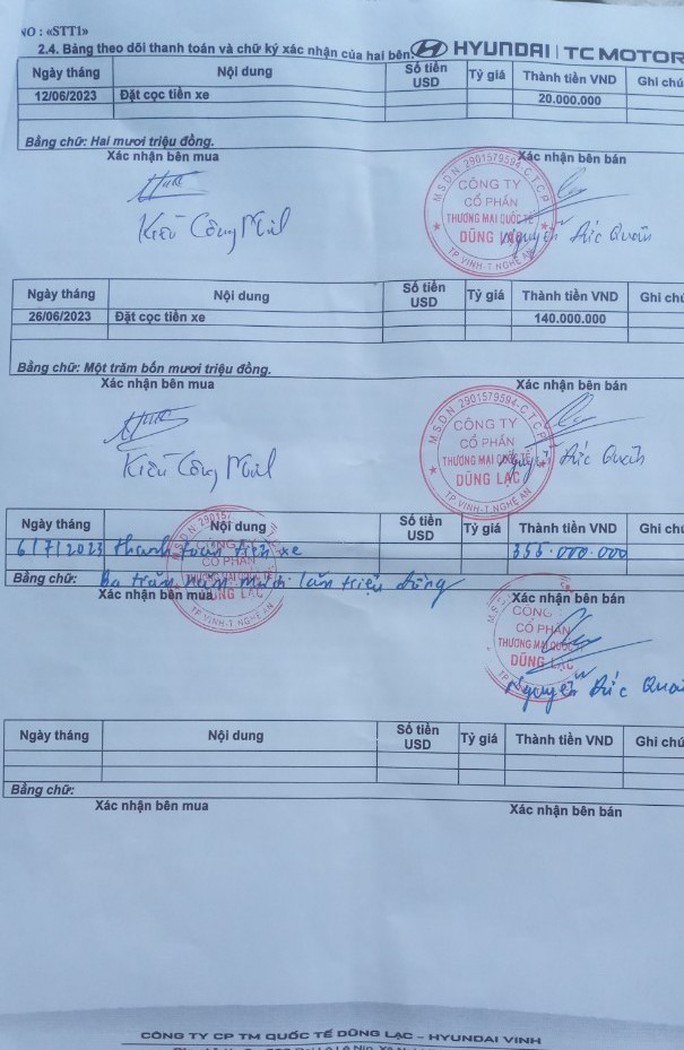 NO : «STT1»
2.4. Bảng theo dõi thanh toán và chữ ký xác nhận của hai bên: HYUNDAI | TC MOTOR
Ngày tháng Nội dung Số tiền USD Tỷ giá Thành tiền VND Ghi chú
12/06/2023 Đặt cọc tiền xe 20.000.000
Bằng chữ: Hai mươi triệu đồng.
Xác nhận bên mua Xác nhận bên bán
M.S.D.N 2901579594-C.T.C.P
CÔNG TY
CỔ PHẦN
THƯƠNG MẠI QUỐC TẾ
DŨNG LẠC
TP VINH-T.NGHỆ AN
Kiều Công Nguyễn Đức Quân
Ngày tháng Nội dung Số tiền USD Tỷ giá Thành tiền VND Ghi chú
26/06/2023 Đặt cọc tiền xe 140.000.000
Bằng chữ: Một trăm bốn mươi triệu đồng.
Xác nhận bên mua Xác nhận bên bán
M.S.D.N 2901579594-C.T.C.P
CÔNG TY
CỔ PHẦN
THƯƠNG MẠI QUỐC TẾ
DŨNG LẠC
TP VINH-T.NGHỆ AN
Kiều Công Đức Quân
Ngày tháng Nội dung Số tiền USD Tỷ giá Thành tiền VND Ghi chú
6/7/2023 thanh toán tiền xe 355.000.000
Bằng chữ: Ba trăm năm mươi lăm triệu đồng
Xác nhận bên mua Xác nhận bên bán
M.S.D.N 29015
CÔNG TY
DŨNG LẠC
TP VINH-T.NGHỆ AN
CÔNG
CỔ PHẦN
THƯƠNG MẠI QUỐC
DŨNG LẠC
Nguyễn Đức Quân
Ngày tháng Nội dung Số tiền USD Tỷ giá Thành tiền VND Ghi chú
Bằng chữ:
Xác nhận bên mua Xác nhận bên bán
CÔNG TY CP TM QUỐC TẾ DŨNG LẠC – HYUNDAI VINH